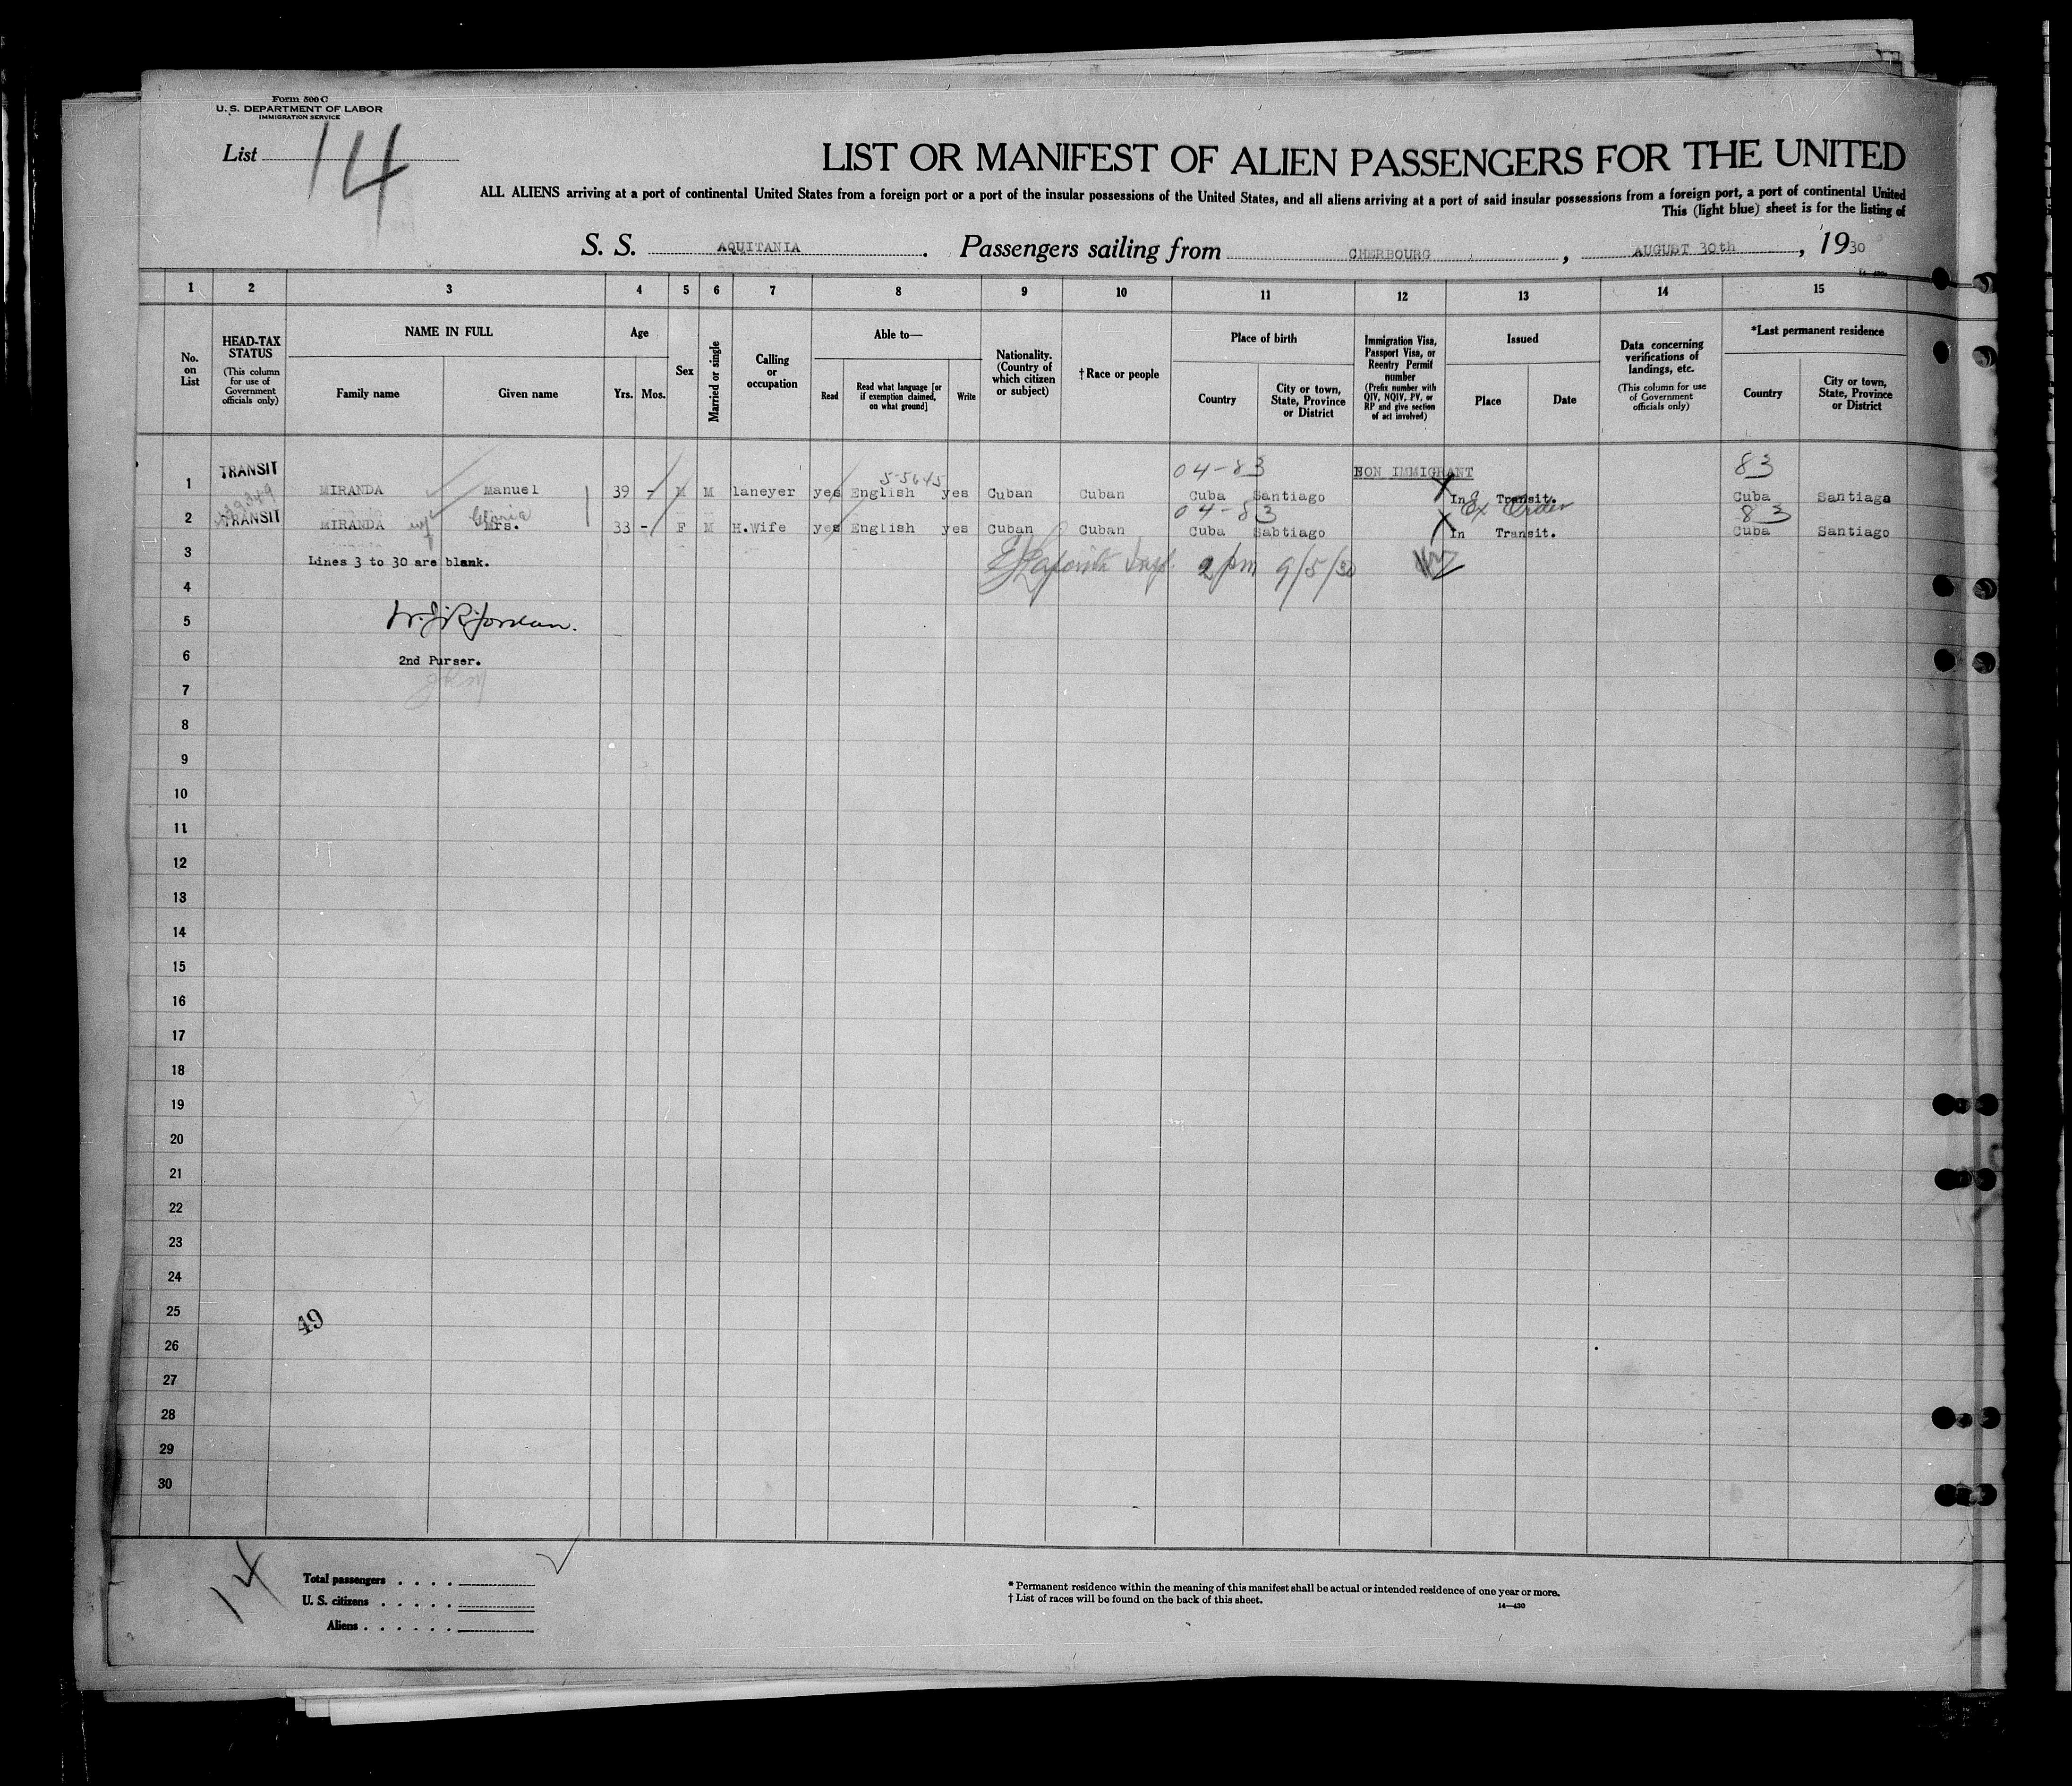 Form 500 C
U. S. DEPARTMENT OF LABOR
IMMIGRATION SERVICE
List 14
LIST OR MANIFEST OF ALIEN PASSENGERS FOR THE UNITED
ALL ALIENS arriving at a port of continental United States from a foreign port or a port of the insular possessions of the United States, and all aliens arriving at a port of said insular possessions from a foreign port, a port of continental United
This (light blue) sheet is for the listing of
S. S. AQUITANIA. Passengers sailing from CHERBOURG, AUGUST 30th, 1930
1 2 3 4 5 6 7 8 9 10 11 12 13 14 15
No. on List
HEAD-TAX STATUS
(This column for use of Government officials only)
NAME IN FULL
Family name Given name
Age
Yrs. Mos.
Sex
Married or single
Calling or occupation
Able to—
Read
Read what language [or if exemption claimed, on what ground]
Write
Nationality. (Country of which citizen or subject)
† Race or people
Place of birth
Country
City or town, State, Province or District
Immigration Visa, Passport Visa, or Reentry Permit number
(Prefix number with QIV, NQIV, PV, or RP and give section of act involved)
Issued
Place Date
Data concerning verifications of landings, etc.
(This column for use of Government officials only)
*Last permanent residence
Country
City or town, State, Province or District
TRANSIT 5-5645 04-83 NON IMMIGRANT 83
1 MIRANDA Manuel 39 - M M laneyer yes English yes Cuban Cuban Cuba Santiago X In Transit. Cuba Santiago
TRANSIT Gloria 04-83 Ex Order 83
2 MIRANDA wf Mrs. 33 - F M H.Wife yes English yes Cuban Cuban Cuba Sabtiago X In Transit. Cuba Santiago
3 Lines 3 to 30 are blank. 2 pm 9/5/30
4
5
6 2nd Purser.
7
8
9
10
11
12
13
14
15
16
17
18
19
20
21
22
23
24
25
49
26
27
28
29
30
14
Total passengers . . . .
U. S. citizens . . . . .
Aliens . . . . . .
* Permanent residence within the meaning of this manifest shall be actual or intended residence of one year or more.
† List of races will be found on the back of this sheet.
14—430